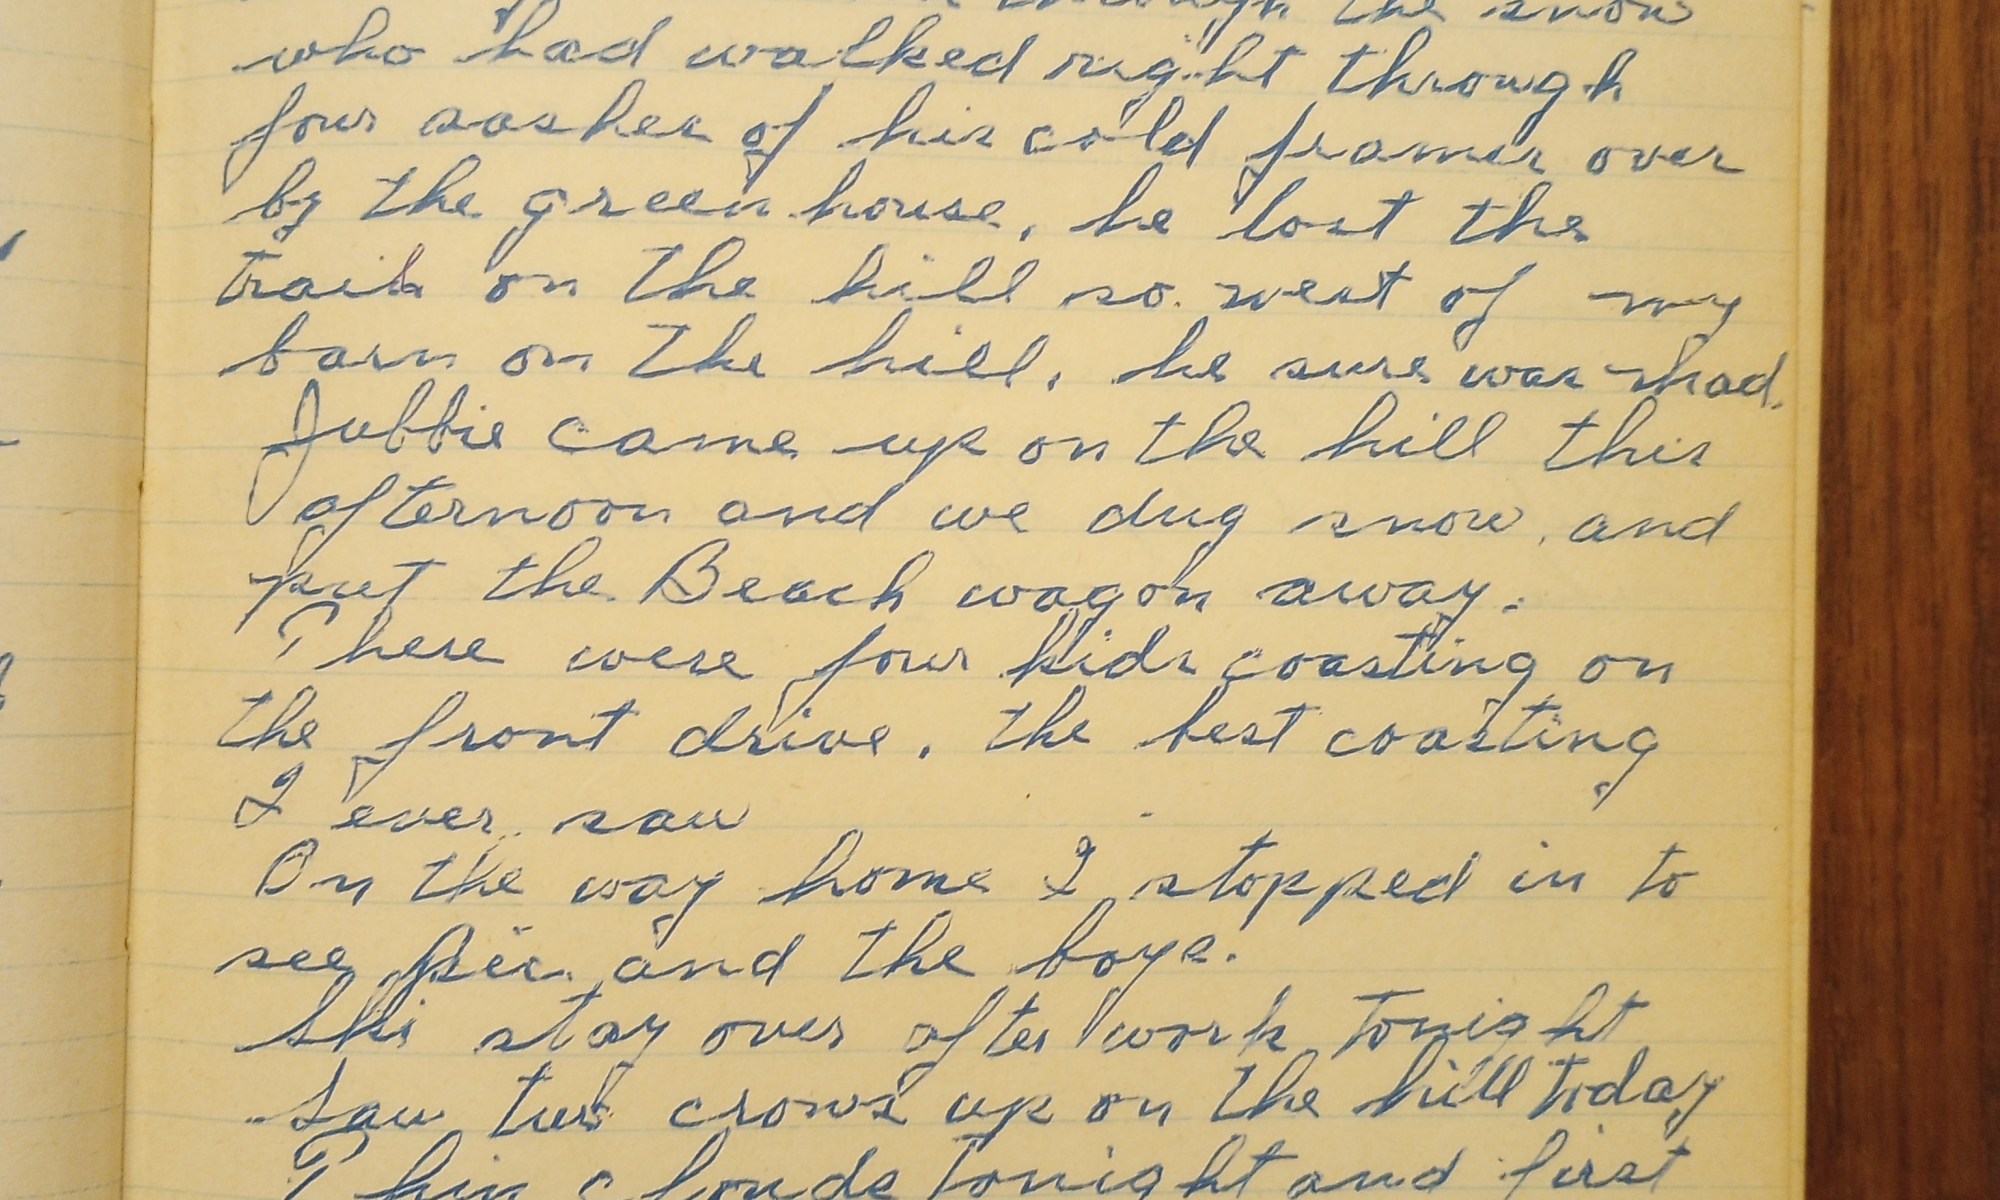 through the snow
who had walked right through
four sashes of his cold frames over
by the green house, he lost the
trail on the hill so. west of my
barn on the hill, he sure was mad.
came up on the hill this
afternoon and we dug snow, and
put the Beach wagon away.
There were four kids coasting on
the front drive, the best coasting
I ever saw
On the way home I stopped in to
see and the boys.
stay over after work tonight
Saw two crows up on the hill today
Thin clouds tonight and first